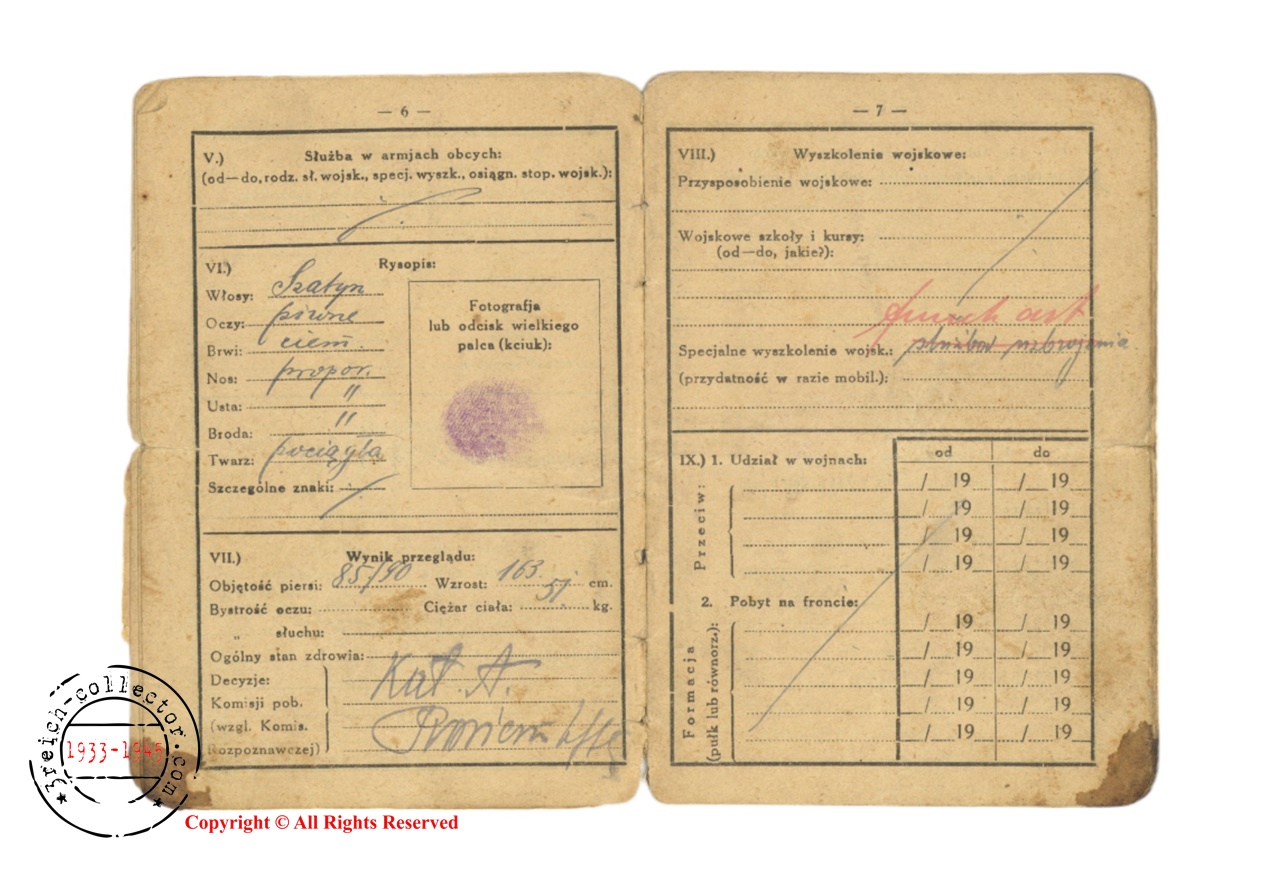 — 6 —
V.) Służba w armjach obcych:
(od—do, rodz. sł. wojsk., specj. wyszk., osiągn. stop. wojsk.):
VI.) Rysopis:
Włosy: Szatyn
Oczy: piwne
Brwi: ciem.
Nos: propor.
Usta: "
Broda: "
Twarz: pociągła
Szczególne znaki:
Fotografja
lub odcisk wielkiego
palca (kciuk):
VII.) Wynik przeglądu:
Objętość piersi: 85/90 Wzrost: 163 cm.
Bystrość oczu: Ciężar ciała: 51 kg.
„ słuchu:
Ogólny stan zdrowia:
Decyzje:
Komisji pob.
(wzgl. Komis.
Rozpoznawczej)
Kat. A.
— 7 —
VIII.) Wyszkolenie wojskowe:
Przysposobienie wojskowe:
Wojskowe szkoły i kursy:
(od—do, jakie?):
Specjalne wyszkolenie wojsk.: służba uzbrojenia
(przydatność w razie mobil.):
IX.) 1. Udział w wojnach: od do
Przeciw:
/ 19 / 19
/ 19 / 19
/ 19 / 19
/ 19 / 19
2. Pobyt na froncie:
Formacja
(pułk lub równorz.):
/ 19 / 19
/ 19 / 19
/ 19 / 19
/ 19 / 19
/ 19 / 19
3reich-collector.com
1933-1945
Copyright © All Rights Reserved